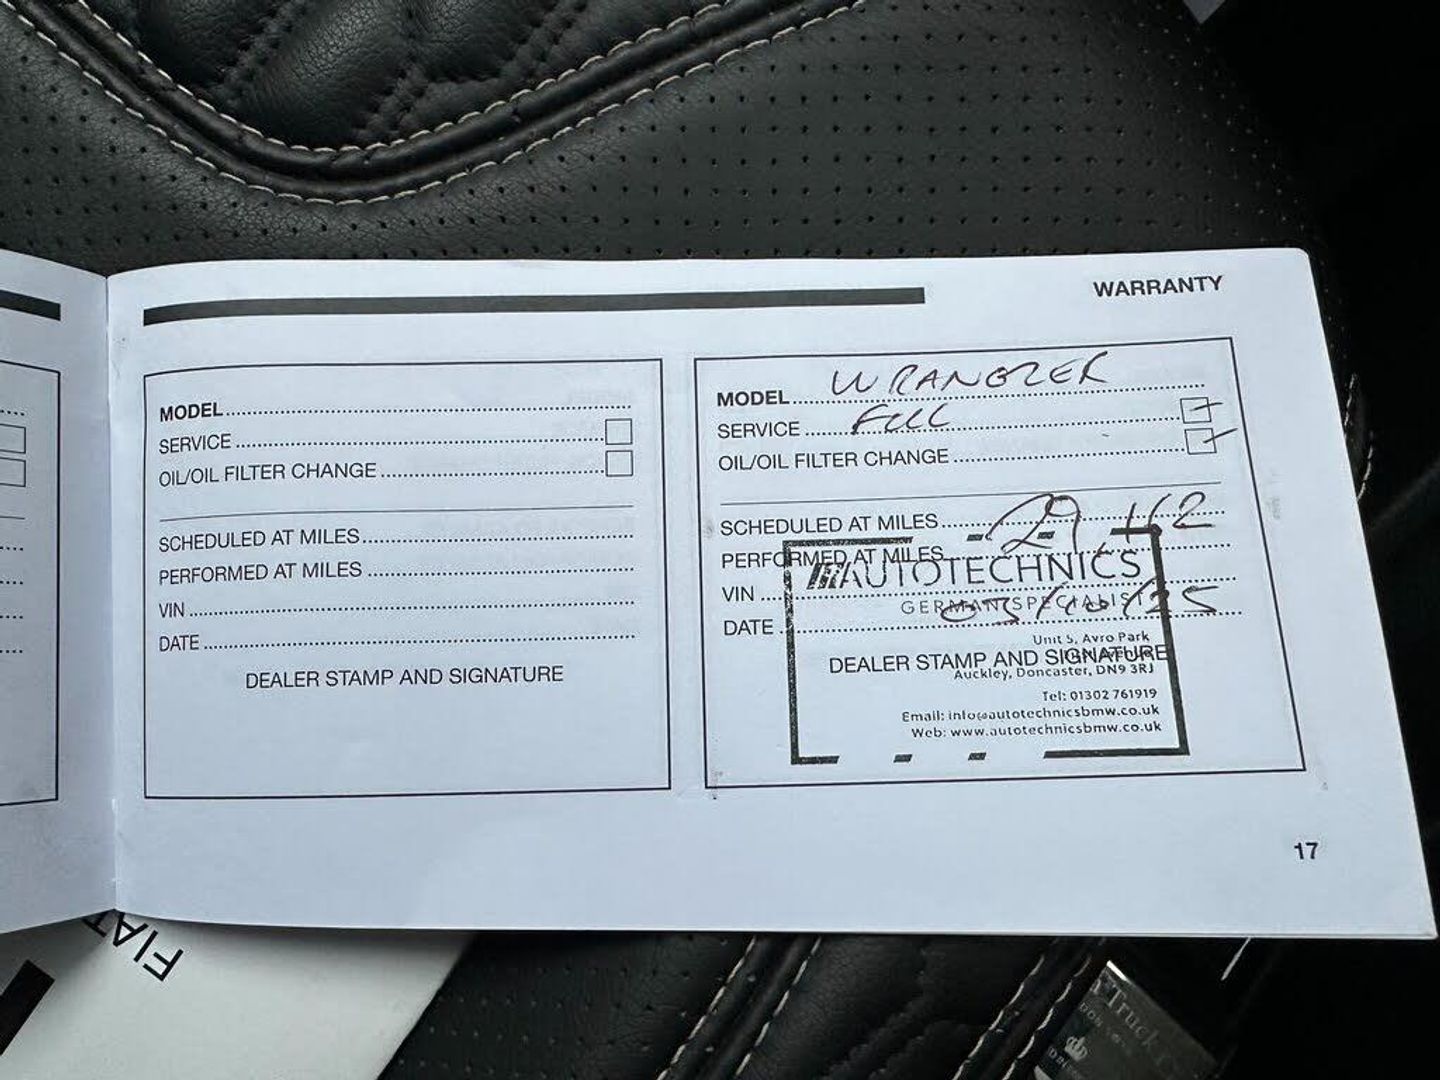 WARRANTY
MODEL
SERVICE
OIL/OIL FILTER CHANGE
SCHEDULED AT MILES
PERFORMED AT MILES
VIN
DATE
DEALER STAMP AND SIGNATURE
MODEL WRANGLER
SERVICE FULL
OIL/OIL FILTER CHANGE
SCHEDULED AT MILES
PERFORMED AT MILES 29,112
AUTOTECHNICS
VIN
GERMAN SPECIALIST
DATE 03/10/25
Unit 5, Avro Park
DEALER STAMP AND SIGNATURE
Auckley, Doncaster, DN9 3RJ
Tel: 01302 761919
Email: info@autotechnicsbmw.co.uk
Web: www.autotechnicsbmw.co.uk
17
FIAT
Truck